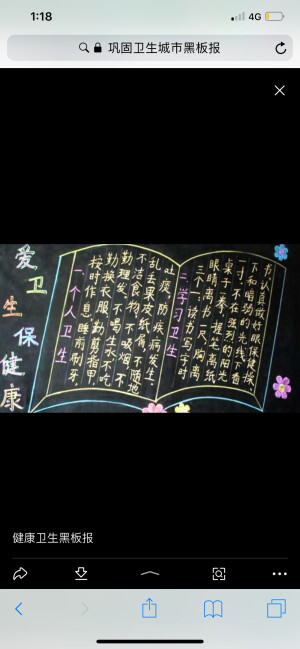 1:18
4G
巩固卫生城市黑板报
爱卫生保健康
一、个人卫生
按时作息,睡前刷牙,
勤换衣服,勤剪指甲,
勤理发,不喝生水不吃
不洁食物,不吸烟,不
乱丢果皮纸屑,不随地
吐痰,防疾病发生。
二 学习卫生
三个一:读书写字时
眼睛离书一尺,胸离
桌子一拳,握笔离纸
一寸,不在强烈的阳光
下和暗弱的光线下看
书,认真做好眼保健操。
健康卫生黑板报